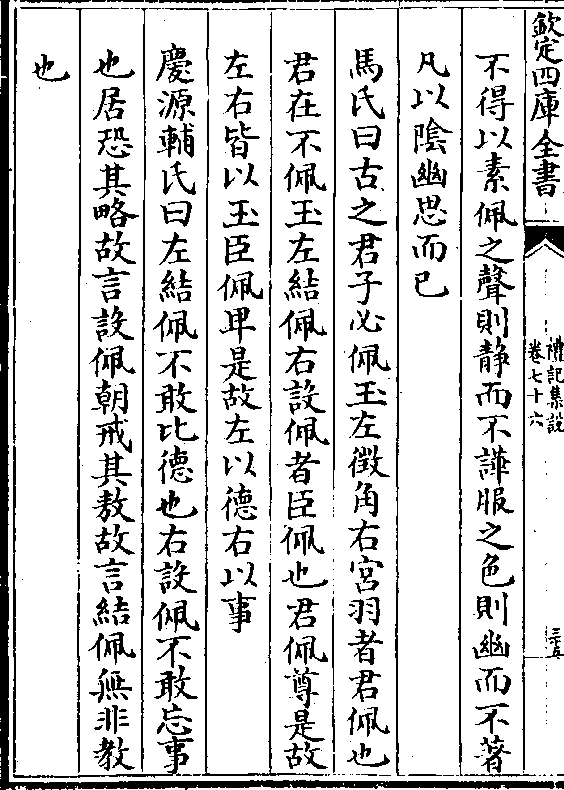 欽定四庫全書
禮記集說
卷七十六
不得以素佩之聲則静而不譁服之色則幽而不著
凡以陰幽思而已
馬氏曰古之君子必佩玉左徵角右宮羽者君佩也
君在不佩玉左結佩右設佩者臣佩也君佩尊是故
左右皆以玉臣佩卑是故左以德右以事
慶源輔氏曰左結佩不敢比德也右設佩不敢忘事
也居恐其略故言設佩朝戒其敖故言結佩無非教
也